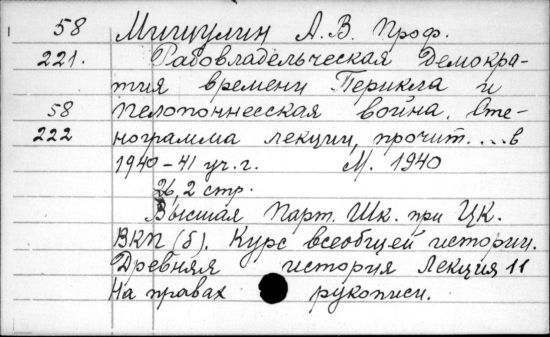 58 Мишулин А. В. Проф.
221. Рабовладельческая Демокра-
тия времени Перикла и
58 Пелопоннесская война. Сте-
222 нограмма лекции, прочит. ... в
1940-41 уч. г. М. 1940
26, 2 стр.
Высшая Парт. Шк. при ЦК.
ВКП(б). Курс всеобщей истории.
Древняя история Лекция 11
На правах рукописи.